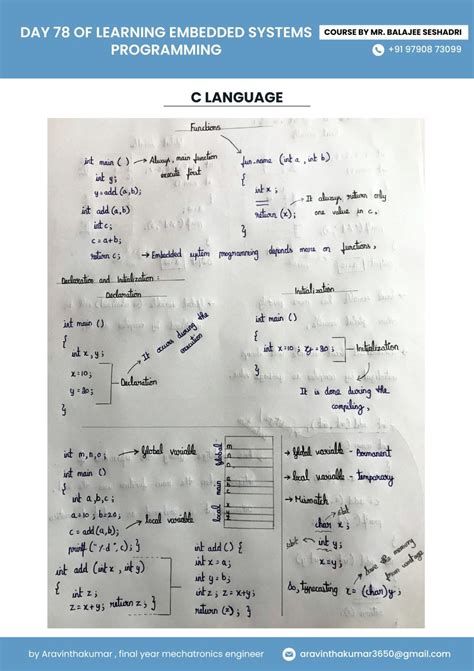 DAY 78 OF LEARNING EMBEDDED SYSTEMS
PROGRAMMING
COURSE BY MR. BALAJEE SESHADRI
+91 97908 73099
C LANGUAGE
Functions
int main ( ) → Always, main function
execute first
int y;
y = add (a, b);
int add (a,b)
int c;
c = a+b;
return c;
fun-name (int a, int b)
{
int x ;
return (x);
}
→ It always return only
one value in c,
→ Embedded system programming depends more on functions,
Declaration and Initialization :
Declaration
int main ()
{
int x, y;
x = 10 ;
y = 20 ;
}
→ It occurs during the
execution
Declaration
Initialization
int main ()
{
int x=10 ; y=20 ;
}
Initialization
It is done during the
compiling,
int m, n, o ; → Global variable
int main ()
{
int a,b,c ;
a=10 ; b=20 ;
c = add (a,b);
printf ("%d", c); }
→ local variable
int add (int x, int y)
{
int z ;
z = x+y; return z; }
int add () {
int x = a;
int y = b;
int z = x+y;
return (z); }
global
m
n
o
main
a
b
c
local
x
y
z
→ Global variable - Permanent
→ local variable - Temporary
→ Mismatch
8bit
char x ;
int y ;
So, typecasting x = (char) y ;
→ save the memory
from wastage
by Aravinthakumar , final year mechatronics engineer
aravinthakumar3650@gmail.com